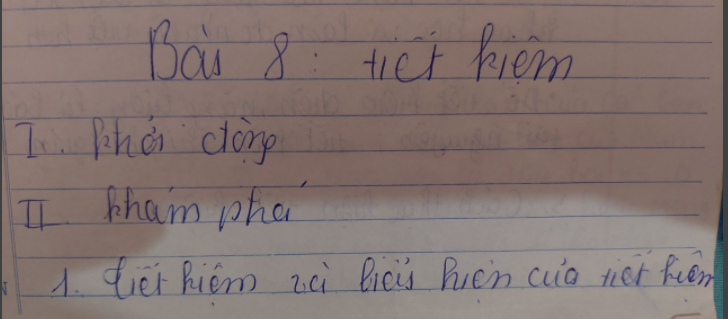 Bài 8: tiết kiệm
I. khởi động
II. khám phá
1. tiết kiệm và biểu hiện của tiết kiệm